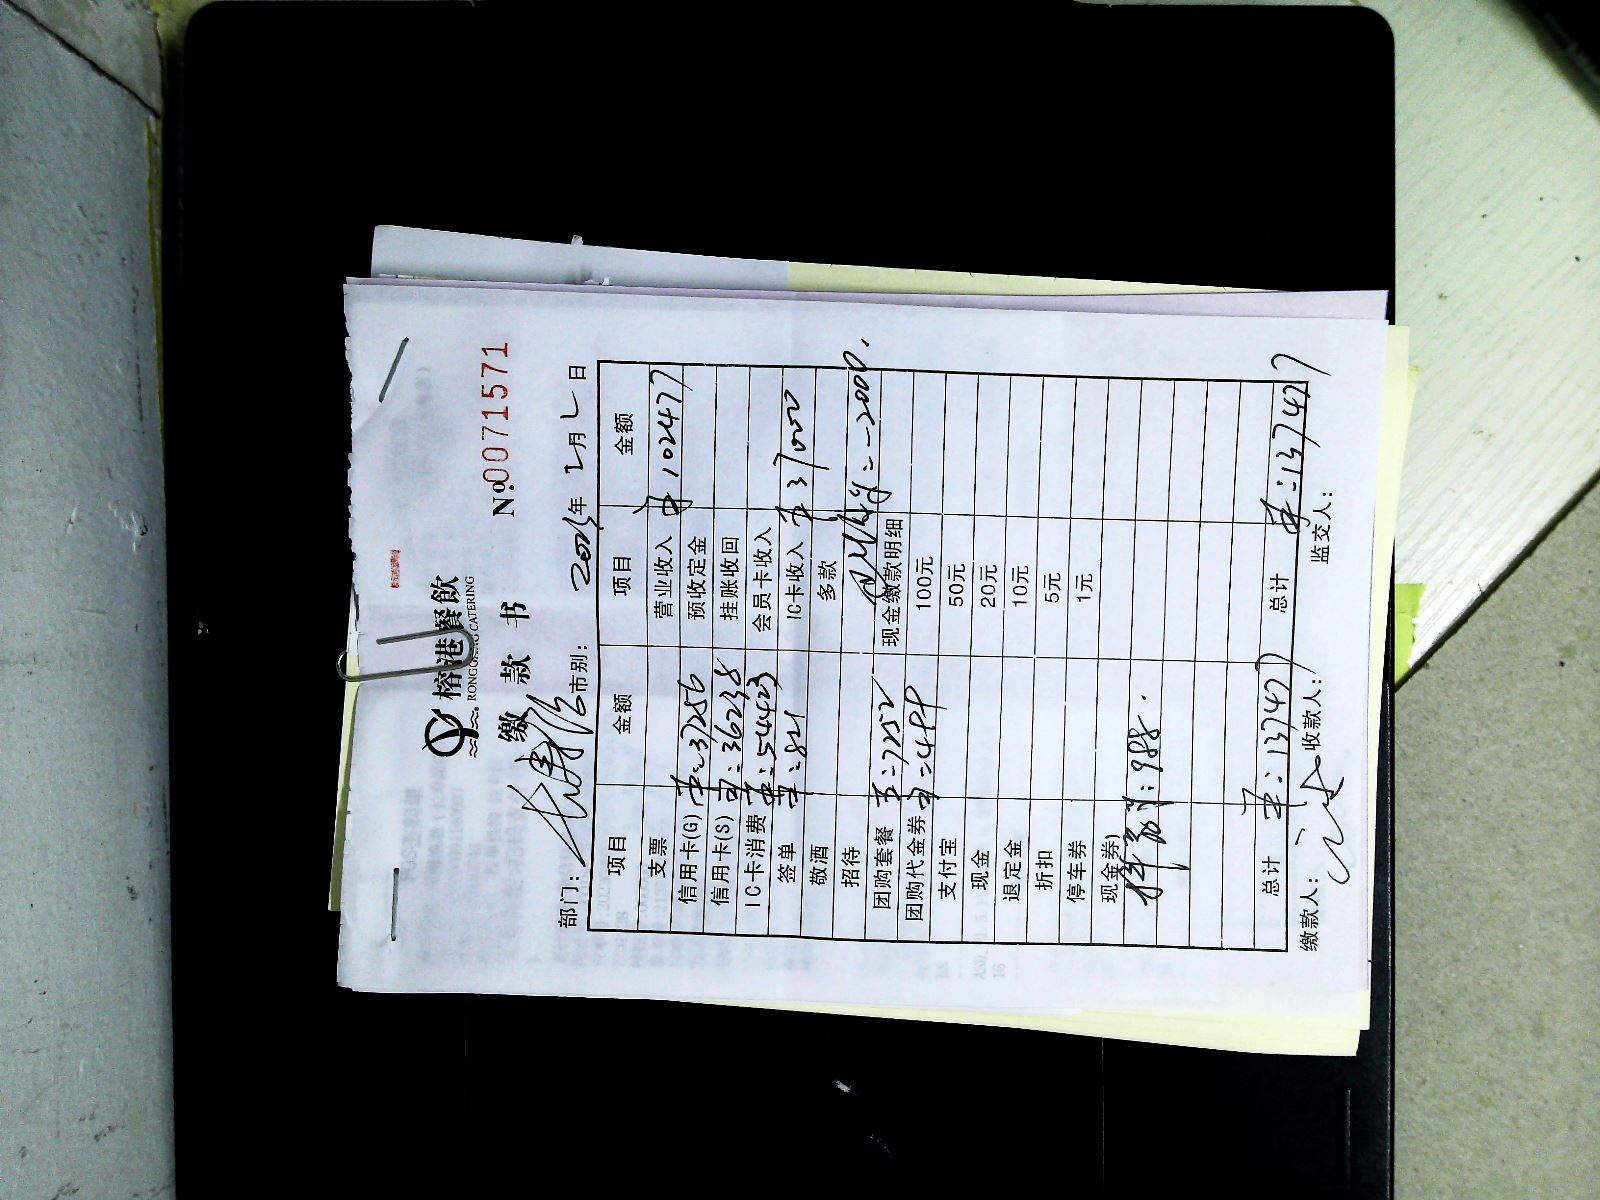 榕港餐飲
RONGGANG CATERING
缴 款 书
No.0071571
部门: 市别: 年 2月 2日
项目 金额 项目 金额
支票 营业收入 102477
信用卡(G) 37256 预收定金
信用卡(S) 36238 挂账收回
IC卡消费 54423 会员卡收入
签单 821 IC卡收入 37000
敬酒 多款
招待 -2000.
团购套餐 7252 现金缴款明细
团购代金券 100元
支付宝 50元
现金 20元
退定金 10元
折扣 5元
停车券 1元
现金券)
988.
总计 137477 总计 137477
缴款人: 收款人: 监交人: